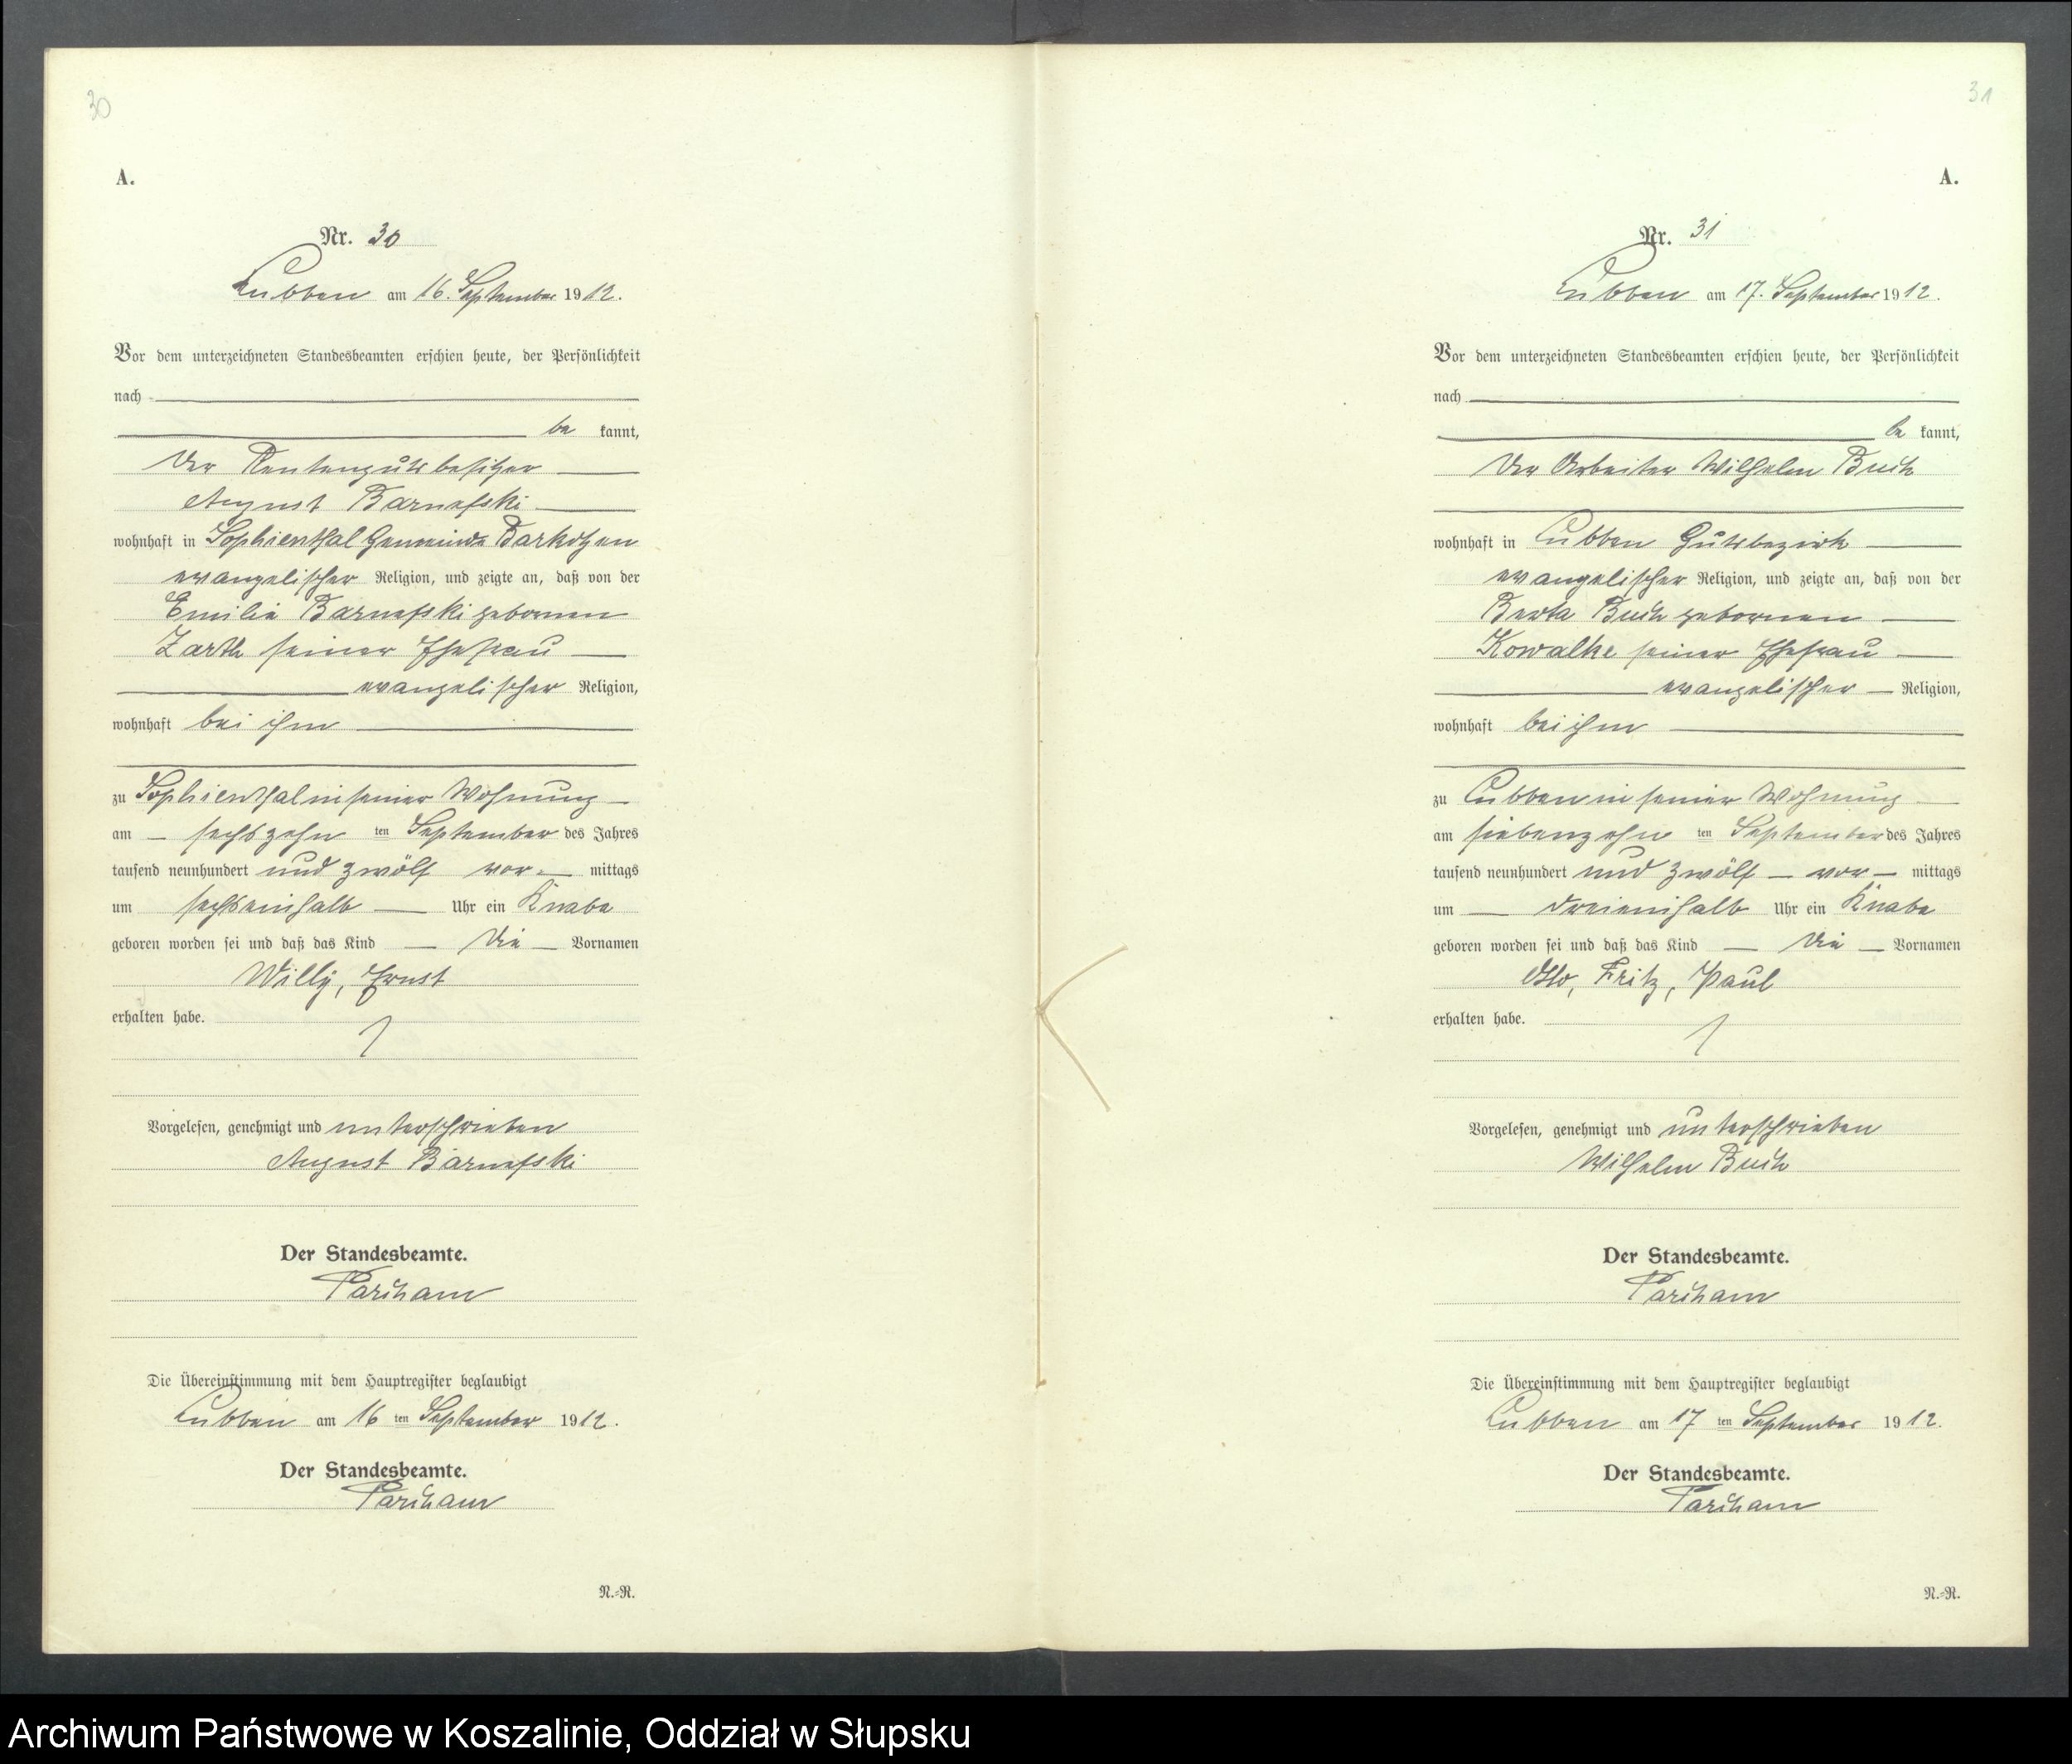 30
A.
Nr. 30
Lubben am 16. September 1912.
Vor dem unterzeichneten Standesbeamten erschien heute, der Persönlichkeit
nach
be kannt,
der Rentengutsbesitzer
August Barnefski
wohnhaft in Sophienthal Gemeinde Barkotzen
evangelischer Religion, und zeigte an, daß von der
Emilie Barnefski gebornen
Zarth seiner Ehefrau
evangelischer Religion,
wohnhaft bei ihm
zu Sophienthal in seiner Wohnung
am sechszehn ten September des Jahres
tausend neunhundert und zwölf vor- mittags
um sechseinhalb Uhr ein Knabe
geboren worden sei und daß das Kind die Vornamen
Willy, Ernst
erhalten habe.
Vorgelesen, genehmigt und unterschrieben
August Barnefski
Der Standesbeamte.
Die Übereinstimmung mit dem Hauptregister beglaubigt
Lubben am 16 ten September 1912.
Der Standesbeamte.
N.-R.
31
A.
Nr. 31
Lubben am 17. September 1912.
Vor dem unterzeichneten Standesbeamten erschien heute, der Persönlichkeit
nach
be kannt,
der Arbeiter Wilhelm Buch
wohnhaft in Lubben Gutsbezirk
evangelischer Religion, und zeigte an, daß von der
Berta Buch gebornen
Kowalke seiner Ehefrau
evangelischer Religion,
wohnhaft bei ihm
zu Lubben in seiner Wohnung
am siebenzehn ten September des Jahres
tausend neunhundert und zwölf vor mittags
um dreieinhalb Uhr ein Knabe
geboren worden sei und daß das Kind die Vornamen
Otto, Fritz, Paul
erhalten habe.
Vorgelesen, genehmigt und unterschrieben
Wilhelm Buch
Der Standesbeamte.
Die Übereinstimmung mit dem Hauptregister beglaubigt
Lubben am 17 ten September 1912.
Der Standesbeamte.
N.-R.
Archiwum Państwowe w Koszalinie, Oddział w Słupsku